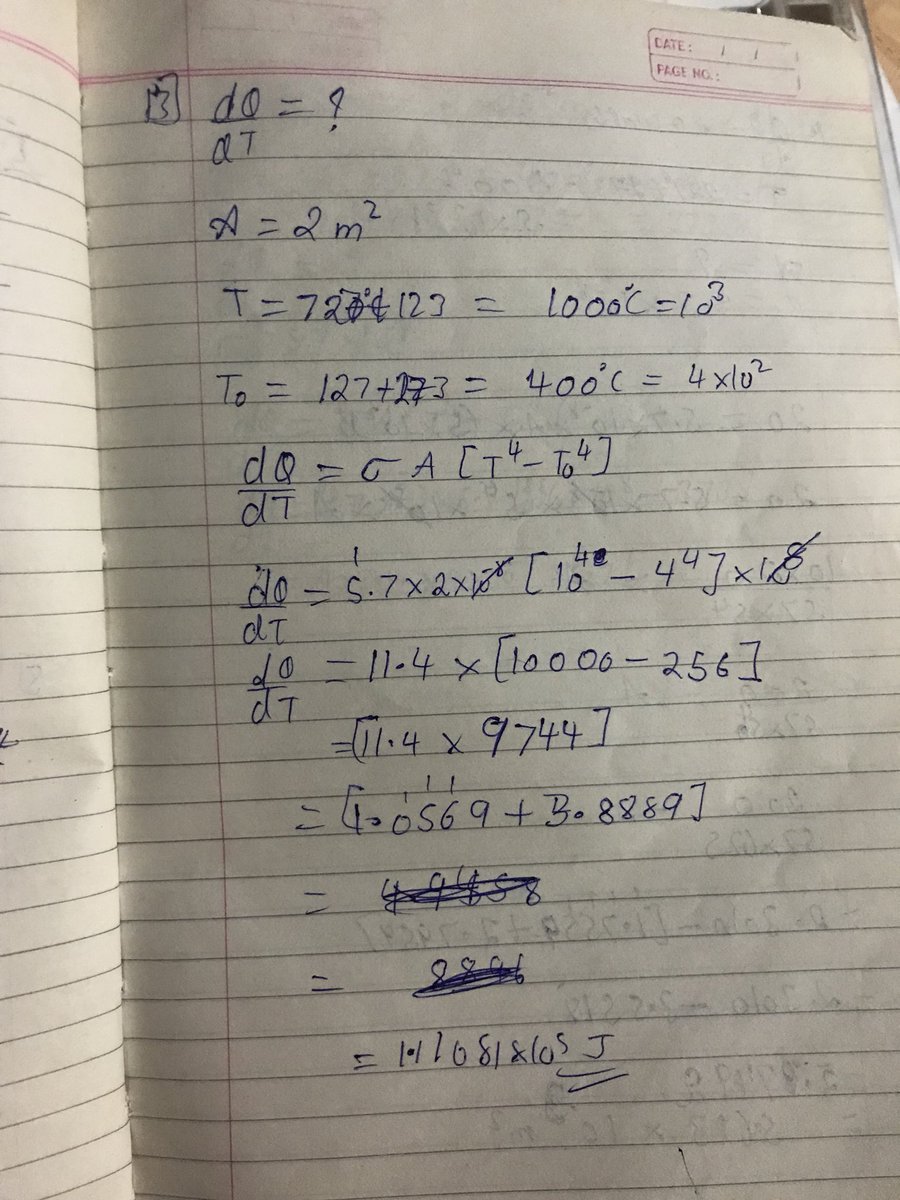 DATE: / /
PAGE NO.:
3 dQ/dT = ?
A = 2 m²
T = 727+123 = 1000°C = 10³
T₀ = 127+273 = 400°C = 4×10²
dQ/dT = σ A [T⁴ - T₀⁴]
dQ/dT = 5.7×2×10⁻⁸ [10⁴ - 4⁴]×10⁸
dQ/dT = 11.4 × [10000 - 256]
=[11.4 × 9744]
= [1.0569 + 3.8889]
= 1.1081×10⁵ J